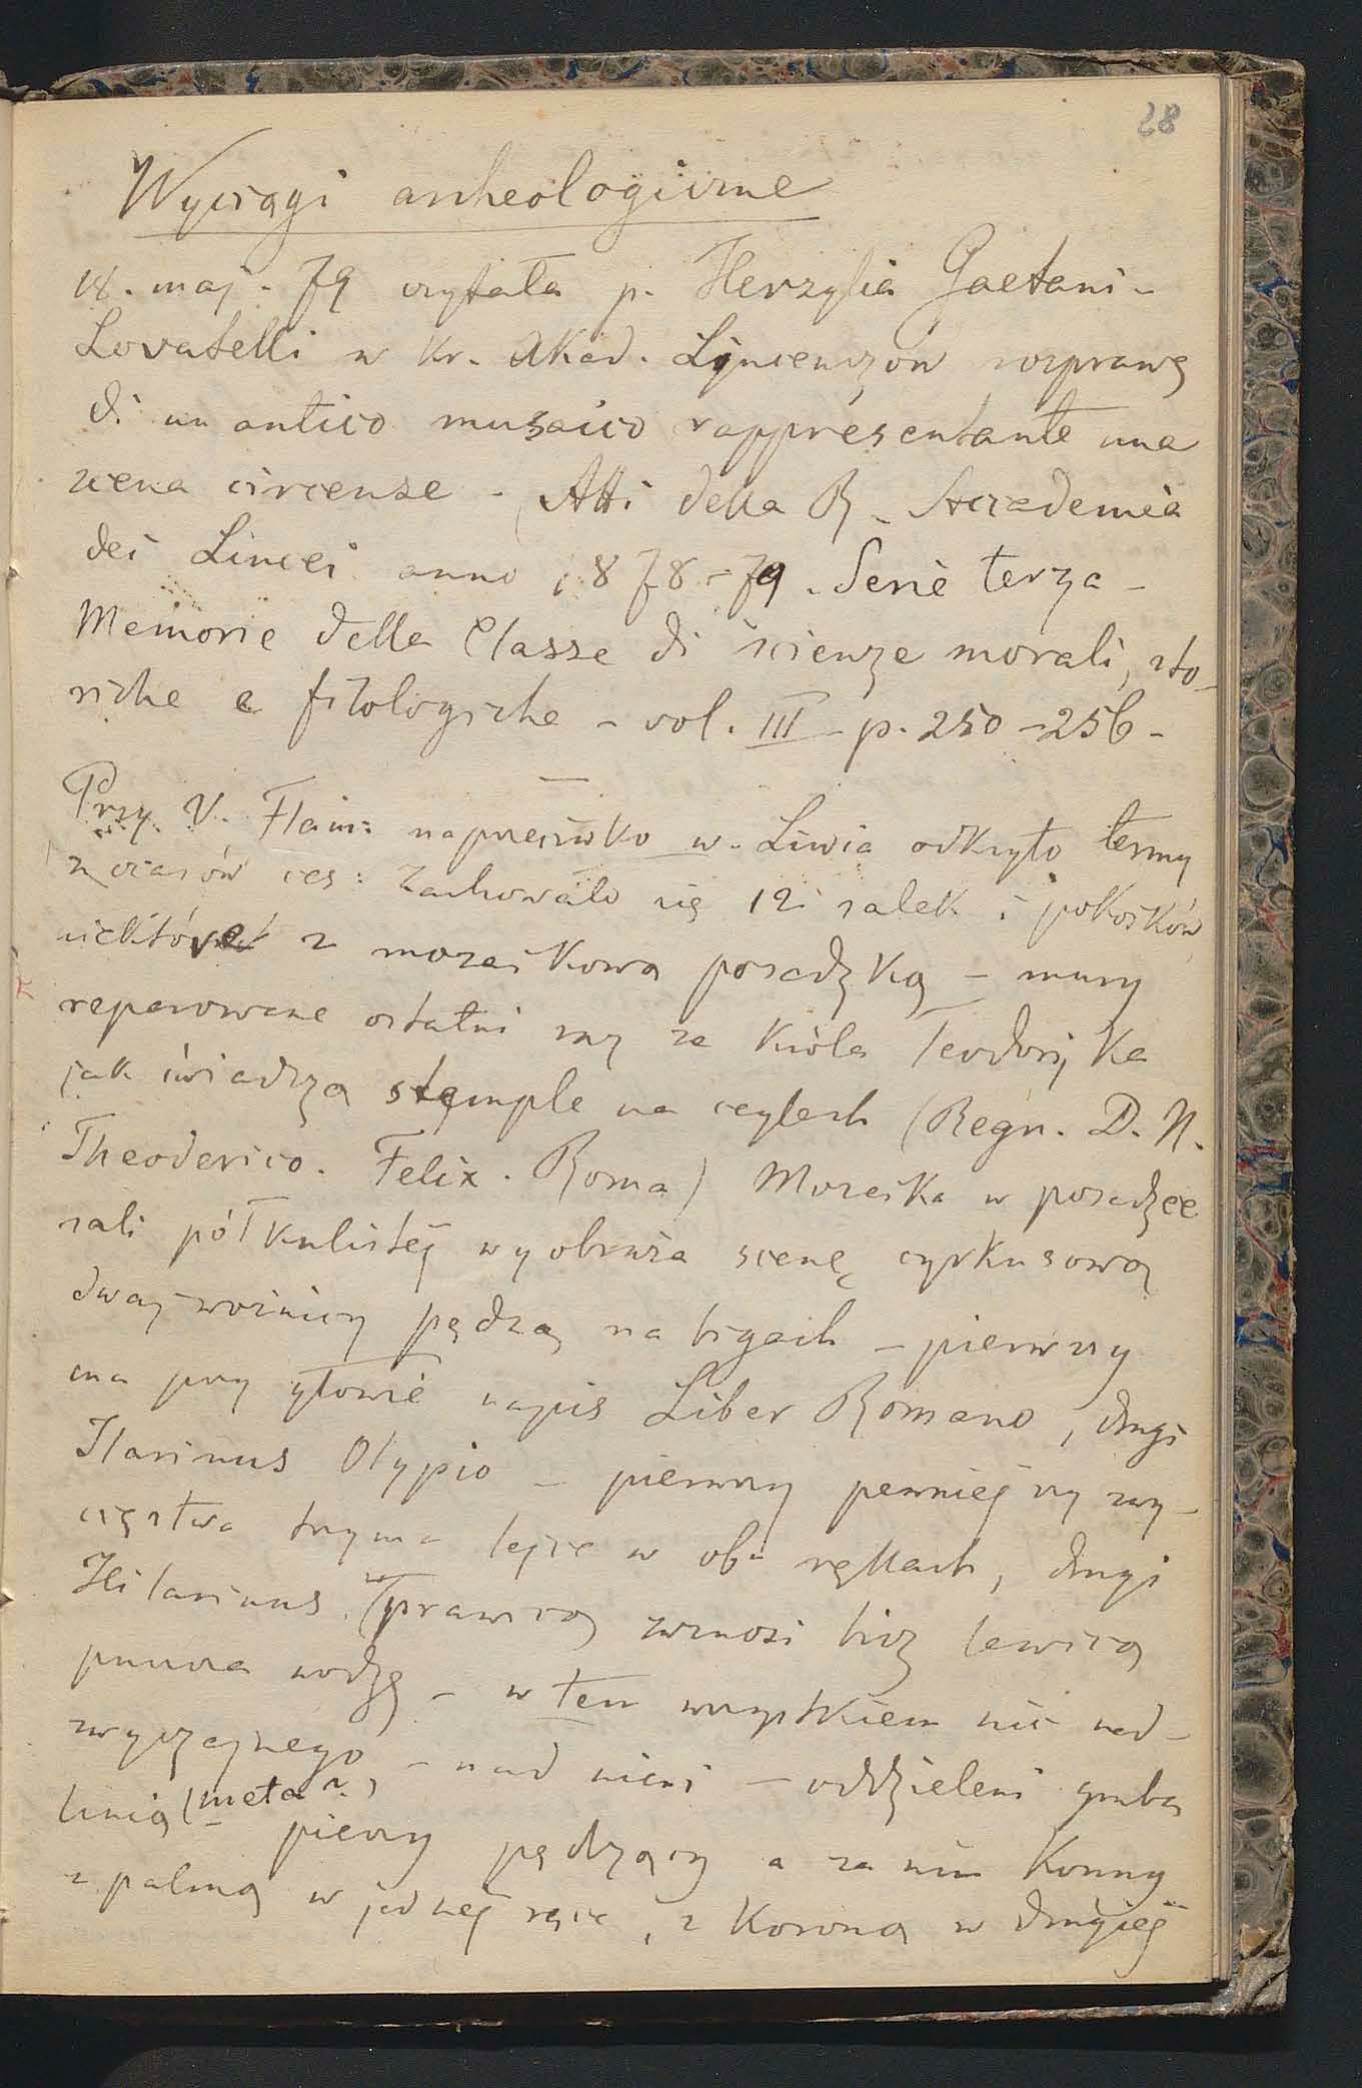 28
Wyciągi archeologiczne
18. maj. 79 czytała p. Herzylia Gaetani-
Lovatelli w kr. Akad. Lynceuszów rozprawę
di un antico musaico rappresentante una
scena circense - Atti della R. Accademia
dei Lincei anno 1878-79. Serie terza -
Memorie della Classe di scienze morali, sto-
riche e filologiche - vol. III - p. 250-256 -
Przy V. Flam: naprzeciwko w. Liwia odkryto termy
z czasów ces: zachowało się 12 salek i pokoików
niektóre z mozaikową posadzką - mury
reperowane ostatni raz za króla Teodoryka
jak świadczą stęmple na cegłach (Regn. D. N.
Theoderico. Felix. Roma) Mozaika w posadzce
sali półkulistej wyobraża scenę cyrkusową
dwaj woźnicy pędzą na bigach - pierwszy
ma przy głowie napis Liber Romano, drugi
Ilarinus Olypio - pierwszy pewniejszy zwy-
cięstwa trzyma lejce w obu rękach, drugi
Hilarinus w prawicą wznosi bicz lewicą
puszcza wodzę - w tem wszystkiem nic nad-
zwyczajnego, - nad nimi - oddzieleni grubą
linią (meta?) - pieszy pędzący a za nim konny
z palmą w jednej ręce, z koroną w drugiej